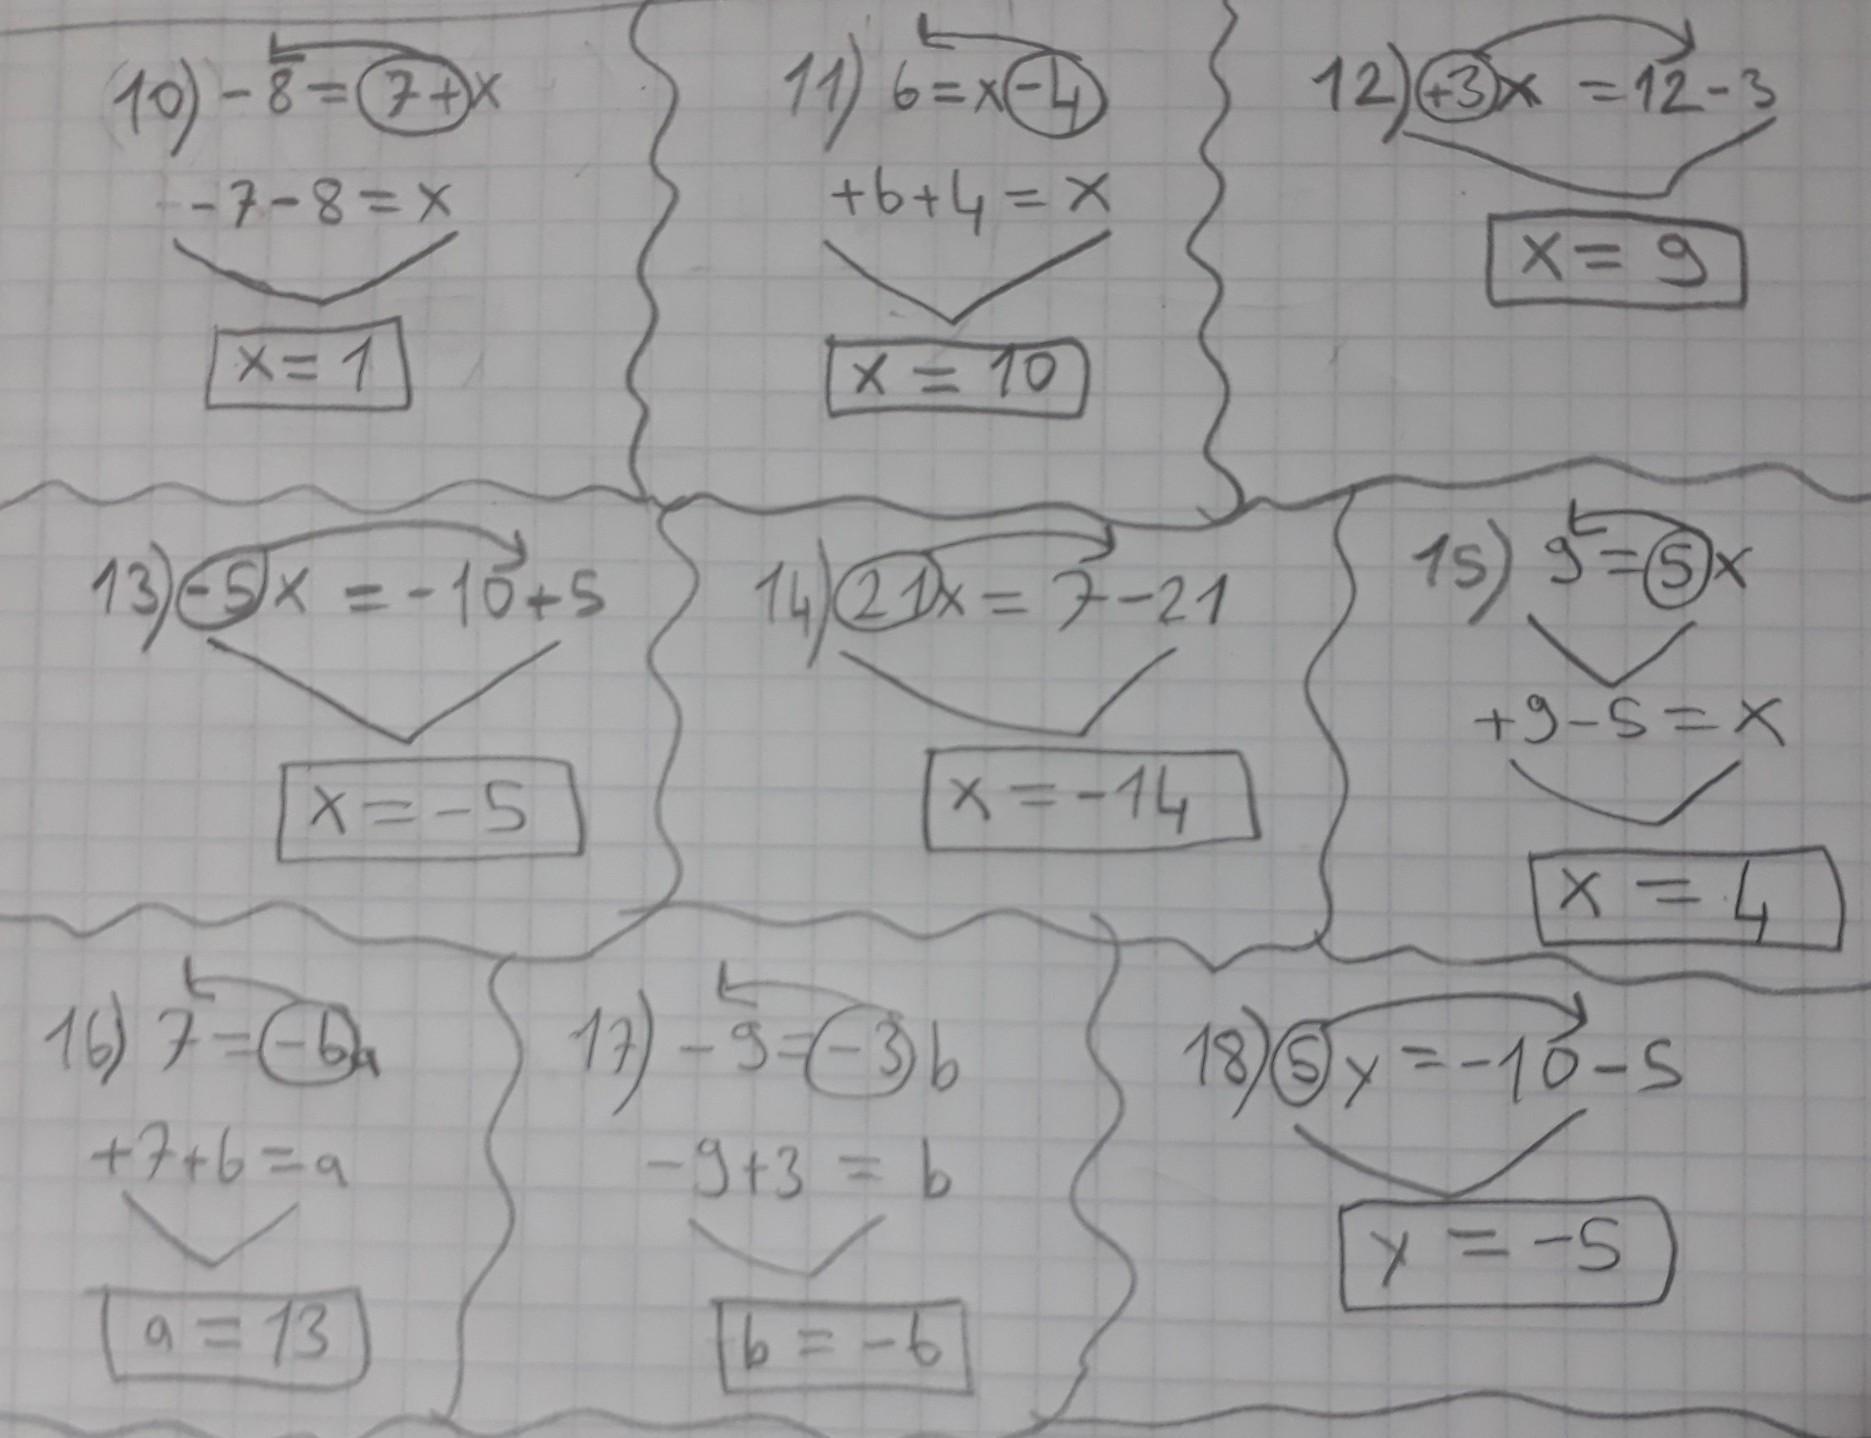 10) -8 = 7+x
-7-8 = x
x = 1
11) 6 = x-4
+6+4 = x
x = 10
12) +3x = 12-3
x = 9
13) -5x = -10+5
x = -5
14) 21x = 7-21
x = -14
15) 9 = 5x
+9-5 = x
x = 4
16) 7 = -6a
+7+6 = a
a = 13
17) -9 = -3b
-9+3 = b
b = -6
18) 5y = -10-5
y = -5